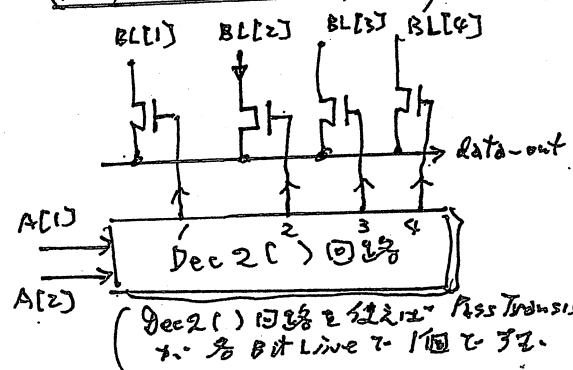 BL[1] BL[2] BL[3] BL[4]
data-out
A[1]
1 2 3 4
Dec2( )回路
A[2]
(Dec2( )回路を使えば Pass Transis
が 各 Bit Line で 1個で すむ.